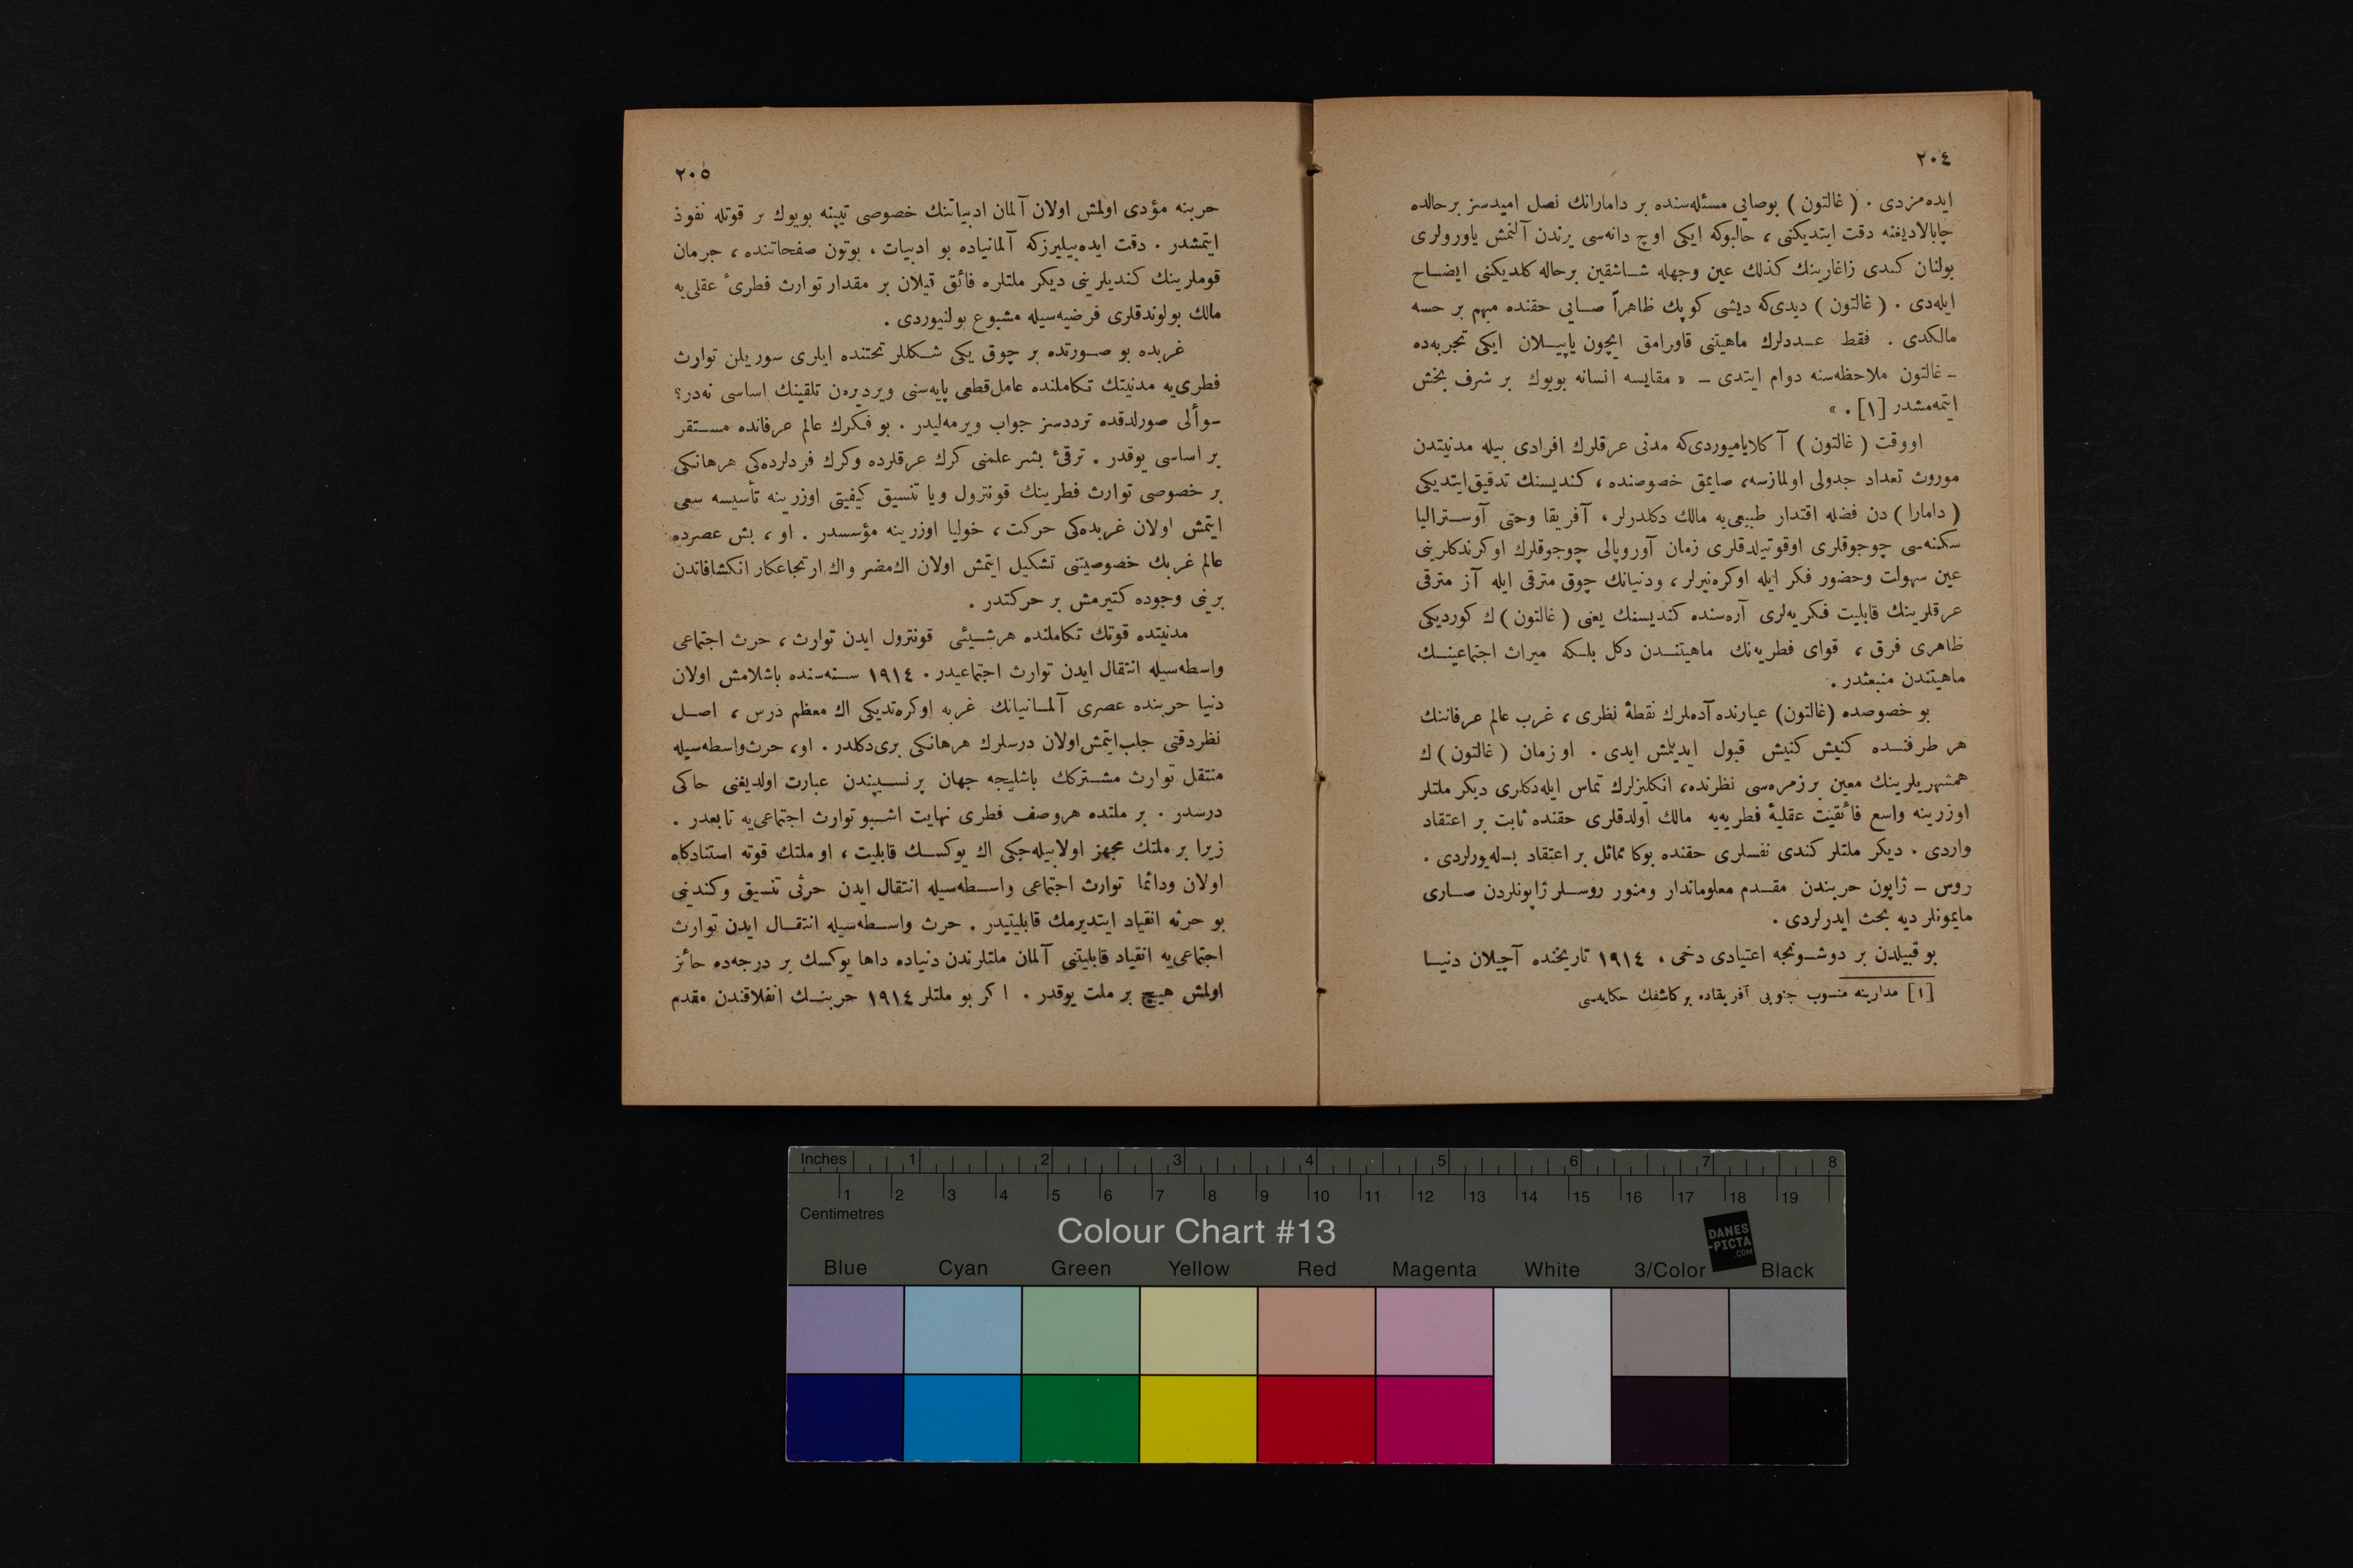 ٢٠٤
ايده‌مزدى . ( غالتون ) بوصايى مسئله‌سنده بر دامارانك نصل اميدسز برحالده
چابالاديغنه دقت ايتديكنى ، حالبوكه ايكى اوچ دانه‌سى يرندن آلنمش ياورولرى
بولنان كندى زاغارينك كذلك عين وجهله شاشقين برحاله كلديكنى ايضاح
ايله‌دى . ( غالتون ) ديدى‌كه ديشى كوپك ظاهراً صايى حقنده مبهم بر حسه
مالكدى . فقط عددلرك ماهيتنى قاورامق ايچون ياپيلان ايكى تجربه‌ده
ـ غالتون ملاحظه‌سنه دوام ايتدى ـ « مقايسه انسانه بويوك بر شرف بخش
ايتمه‌مشدر [١] . »
اووقت ( غالتون ) آكلاياميوردى‌كه مدنى عرقلرك افرادى بيله مدنيتدن
موروث تعداد جدولى اولمازسه، صايمق خصوصنده ، كنديسنك تدقيق‌ايتديكى
( دامارا ) دن فضله اقتدار طبيعى‌يه مالك دكلدرلر ، آفريقا وحتى آوستراليا
سكنه‌سى چوجوقلرى اوقوتيلدقلرى زمان آوروپالى چوجوقلرك اوكرندكلرينى
عين سهولت وحضور فكر ايله اوكره‌نيرلر ، ودنيانك چوق مترقى ايله آز مترقى
عرقلرينك قابليت فكريه‌لرى آره‌سنده كنديسنك يعنى ( غالتون ) ك كورديكى
ظاهرى فرق ، قواى فطريه‌نك ماهيتندن دكل بلكه ميراث اجتماعينك
ماهيتندن منبعثدر .
بو خصوصده (غالتون) عيارنده آدملرك نقطهٔ نظرى ، غرب عالم عرفاننك
هر طرفنده كنيش كنيش قبول ايديلمش ايدى . او زمان ( غالتون ) ك
همشهريلرينك معين بر زمره‌سى نظرنده، انكليزلرك تماس ايله‌دكلرى ديكر ملتلر
اوزرينه واسع فائقيت عقليهٔ فطريه‌يه مالك اولدقلرى حقنده ثابت بر اعتقاد
واردى . ديكر ملتلر كندى نفسلرى حقنده بوكا مماثل بر اعتقاد بسله‌يورلردى .
روس ـ ژاپون حربندن مقدم معلوماتدار ومنور روسلر ژاپونلردن صارى
مايمونلر ديه بحث ايدرلردى .
بو قبيلدن بر دوشونجه اعتيادى دخى ، ١٩١٤ تاريخنده آچيلان دنيا
[١] مدارينه منسوب جنوبى آفريقاده بر كاشفك حكايه‌سى
٢٠٥
حربنه مؤدى اولمش اولان آلمان ادبياتنك خصوصى تيپنه بويوك بر قوتله نفوذ
ايتمشدر . دقت ايده‌بيليرزكه آلمانياده بو ادبيات ، بوتون صفحاتنده ، جرمان
قوملرينك كنديلرينى ديكر ملتلره فائق قيلان بر مقدار توارث فطرئ عقلى‌يه
مالك بولوندقلرى فرضيه‌سيله مشبوع بولنيوردى .
غربده بو صورتده بر چوق يكى شكللر تحتنده ايلرى سوريلن توارث
فطرى‌يه مدنيتك تكاملنده عامل‌قطعى پايه‌سنى ويرديره‌ن تلقينك اساسى نه‌در؟
سوألى صورلدقده ترددسز جواب ويرمه‌ليدر . بو فكرك عالم عرفانده مستقر
بر اساسى يوقدر . ترقئ بشر علمنى كرك عرقلرده وكرك فردلرده‌كى هرهانكى
بر خصوصى توارث فطرينك قونترول ويا تنسيق كيفيتى اوزرينه تأسيسه سعى
ايتمش اولان غربده‌كى حركت ، خوليا اوزرينه مؤسسدر . او ، بش عصرده
عالم غربك خصوصيتنى تشكيل ايتمش اولان اك‌مضر واك ارتجاعكار انكشافاتدن
برينى وجوده كتيرمش بر حركتدر .
مدنيتده قوتك تكاملنده هرشيئى قونترول ايدن توارث ، حرث اجتماعى
واسطه‌سيله انتقال ايدن توارث اجتماعيدر . ١٩١٤ سنه‌سنده باشلامش اولان
دنيا حربنده عصرى آلمانيانك غربه اوكره‌تديكى اك معظم درس ، اصل
نظردقتى جلب‌ايتمش‌اولان درسلرك هرهانكى برى‌دكلدر . او، حرث‌واسطه‌سيله
منتقل توارث مشتركك باشليجه جهان پرنسيپندن عبارت اولديغنى حاكى
درسدر . بر ملتده هروصف فطرى نهايت اشبو توارث اجتماعى‌يه تابعدر .
زيرا بر ملتك مجهز اولابيله‌جكى اك يوكسك قابليت ، او ملتك قوته استنادكاه
اولان ودائما توارث اجتماعى واسطه‌سيله انتقال ايدن حرثى تنسيق وكندينى
بو حرثه انقياد ايتديرمك قابليتيدر . حرث واسطه‌سيله انتقال ايدن توارث
اجتماعى‌يه انقياد قابليتنى آلمان ملتلرندن دنياده داها يوكسك بر درجه‌ده حائز
اولمش هيچ بر ملت يوقدر . اكر بو ملتلر ١٩١٤ حربنك انفلاقندن مقدم
Inches 1 2 3 4 5 6 7 8
1 2 3 4 5 6 7 8 9 10 11 12 13 14 15 16 17 18 19
Centimetres
Colour Chart #13
DANES
-PICTA
.COM
Blue Cyan Green Yellow Red Magenta White 3/Color Black